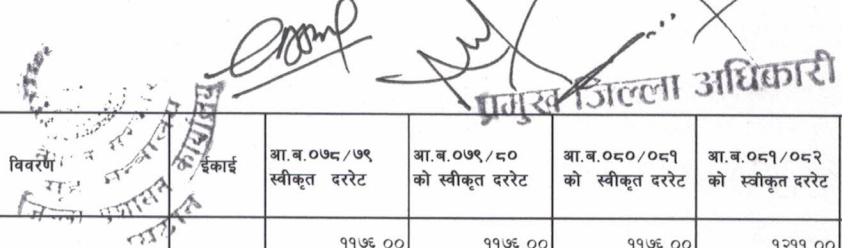 प्रमुख जिल्ला अधिकारी
विवरण ईकाई आ.ब.०७८/७९ स्वीकृत दररेट आ.ब.०७९/८० को स्वीकृत दररेट आ.ब.०८०/०८१ को स्वीकृत दररेट आ.ब.०८१/०८२ को स्वीकृत दररेट
गृह मन्त्रालय
जिल्ला प्रशासन कार्यालय
११७६.०० ११७६.०० ११७६.०० १२११.००